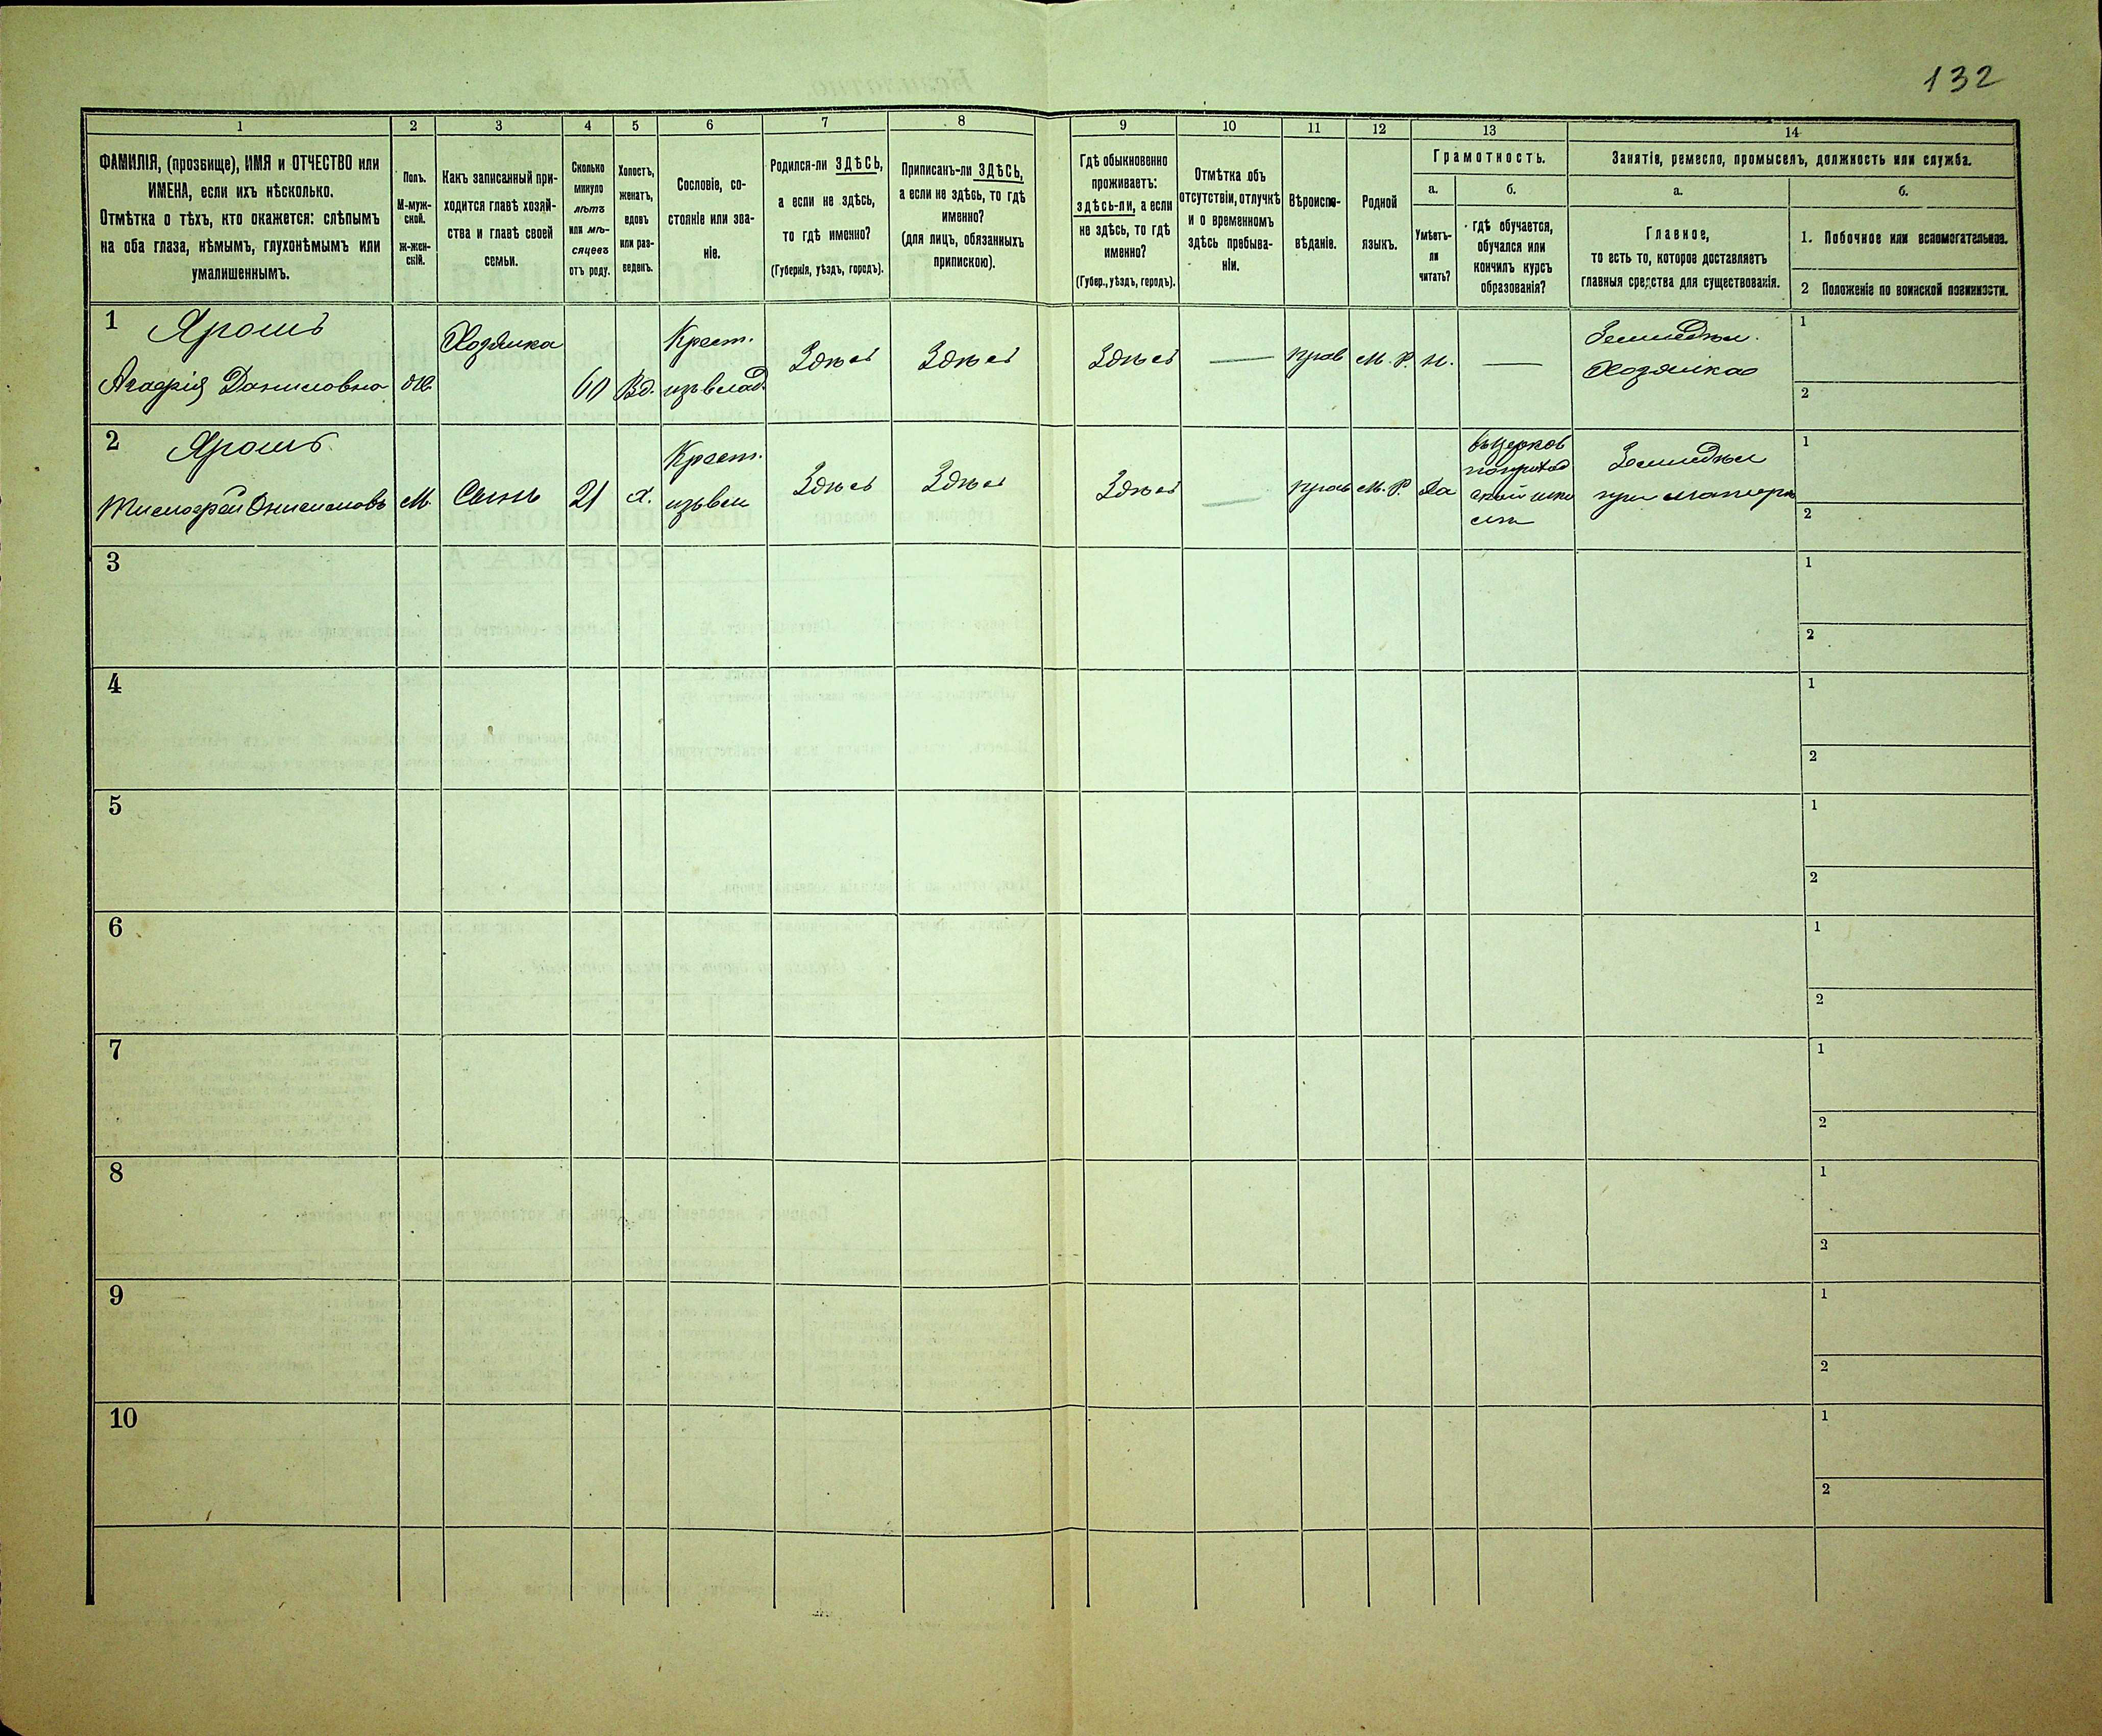 132
1
2
3
4
5
6
7
8
9
10
11
12
13
14
ФАМИЛІЯ, (прозвище), ИМЯ и ОТЧЕСТВО или
ИМЕНА, если ихъ нѣсколько.
Отмѣтка о тѣхъ, кто окажется: слѣпымъ
на оба глаза, нѣмымъ, глухонѣмымъ или
умалишеннымъ.
Полъ.
М-муж-
ской.
ж-жен-
скій.
Какъ записанный при-
ходится главѣ хозяй-
ства и главѣ своей
семьи.
Сколько
минуло
лѣтъ
или мѣ-
сяцевъ
отъ роду.
Холостъ,
женатъ,
вдовъ
или раз-
веденъ.
Сословіе, со-
стояніе или зва-
ніе.
Родился-ли ЗДѢСЬ,
а если не здѣсь,
то гдѣ именно?
(Губернія, уѣздъ, городъ).
Приписанъ-ли ЗДѢСЬ,
а если не здѣсь, то гдѣ
именно?
(для лицъ, обязанныхъ
припискою).
Гдѣ обыкновенно
проживаетъ:
здѣсь-ли, а если
не здѣсь, то гдѣ
именно?
(Губер., уѣздъ, городъ).
Отмѣтка объ
отсутствіи, отлучкѣ
и о временномъ
здѣсь пребыва-
ніи.
Вѣроиспо-
вѣданіе.
Родной
языкъ.
Грамотность.
а.
Умѣетъ-
ли
читать?
б.
гдѣ обучается,
обучался или
кончилъ курсъ
образованія?
Занятіе, ремесло, промыселъ, должность или служба.
а.
Главное,
то есть то, которое доставляетъ
главныя средства для существованія.
б.
1. Побочное или вспомогательное.
2 Положеніе по воинской повинности.
1
Ярошъ
Агафія Даниловна
ж.
Хозяйка
60
Вд.
Крест.
изъ влад.
Здѣсь
Здѣсь
Здѣсь
—
прав
М. Р.
н.
—
Землѣдѣл.
Хозяйка
1
2
2
Ярошъ
Тимофей Онисимовъ
М.
Сынъ
21
х.
Крест.
изъ вл
Здѣсь
Здѣсь
Здѣсь
—
прав
М. Р.
Да
въ церков
приход
ской шко
лѣ
Землѣдѣл
при матери
1
2
3
1
2
4
1
2
5
1
2
6
1
2
7
1
2
8
1
2
9
1
2
10
1
2